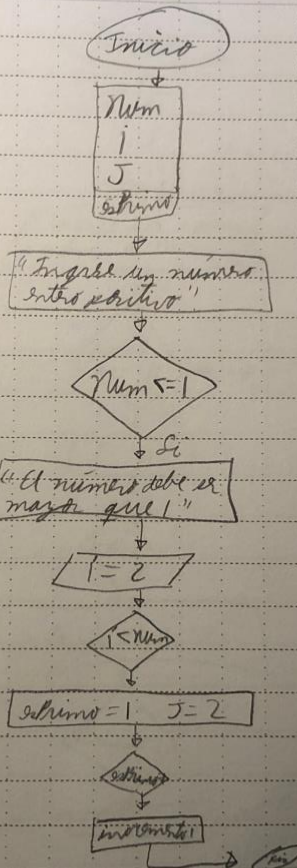 Inicio
Num
i
J
esPrimo
"Ingrese un número
entero positivo"
Num <= 1
Si
"El número debe ser
mayor que 1"
i = 2
i < Num
esPrimo = 1 J = 2
esPrimo
incremento i
Fin